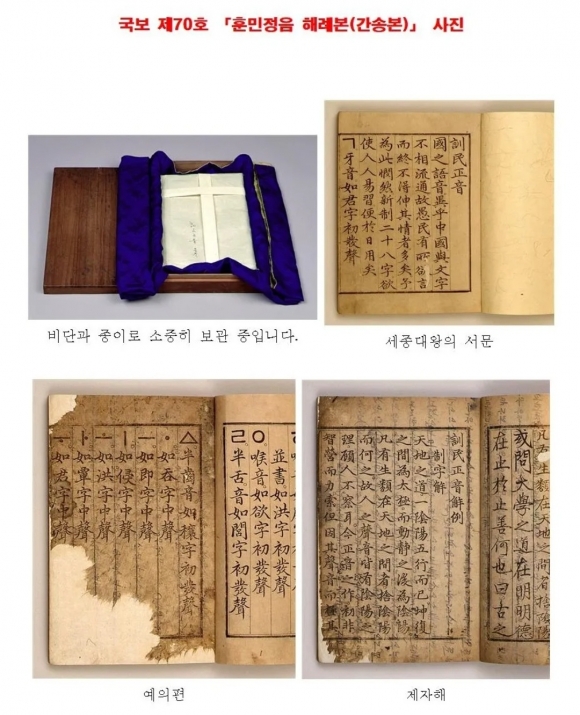 국보 제70호 「훈민정음 해례본(간송본)」 사진
訓民正音
國之語音異乎中國與文字
不相流通故愚民有所欲言
而終不得伸其情者多矣予
為此憫然新制二十八字欲
使人人易習便於日用矣
ㄱ牙音如君字初發聲
비단과 종이로 소중히 보관 중입니다.
세종대왕의 서문
並書如洪字初發聲
ㅇ喉音如欲字初發聲
ㄹ半舌音如閭字初發聲
ㅿ半齒音如穰字初發聲
ㆍ如呑字中聲
ㅡ如即字中聲
ㅣ如侵字中聲
ㅗ如洪字中聲
ㅏ如覃字中聲
ㅜ如君字中聲
或問大學之道在明明德
在止於止善何也曰古之
訓民正音解例
制字解
天地之道一陰陽五行而已坤復
之間為太極而動靜之後為陰陽
凡有生類在天地之間者捨陰陽
而何之故人之聲音皆有陰陽之
理顧人不察耳今正音之作初非
智營而力索但因其聲音而極其
예의편
제자해